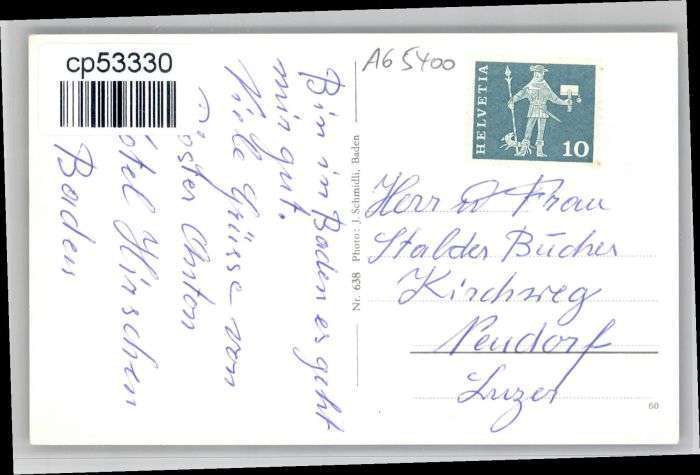 cp53330
A6 5400
HELVETIA
10
Bin in Baden es geht
mir gut.
Viele Grüsse von
Anton
Hirschen
Baden
Nr. 638 Photo: J. Schmidli, Baden
Herr u Frau
Stalder Bucher
Kirchweg
Neudorf
Luzer
60